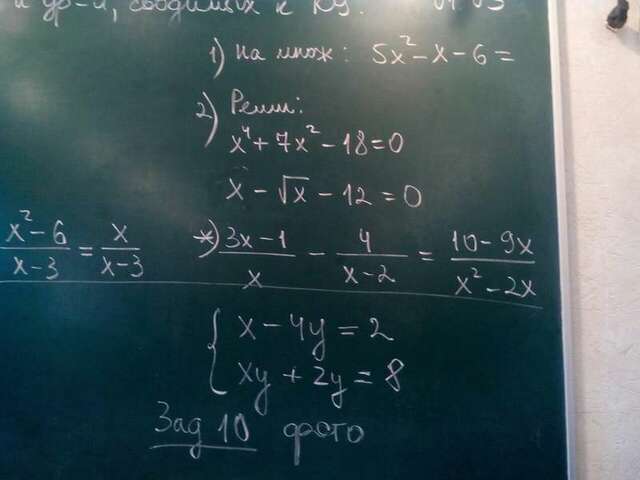 и ур-й, сводимых к КУ.
1) На множ: 5x² - x - 6 =
2) Реши:
x⁴ + 7x² - 18 = 0
x - √x - 12 = 0
(x² - 6)/(x - 3) = x/(x - 3) *) (3x - 1)/x - 4/(x - 2) = (10 - 9x)/(x² - 2x)
{ x - 4y = 2
xy + 2y = 8
Зад 10 фото